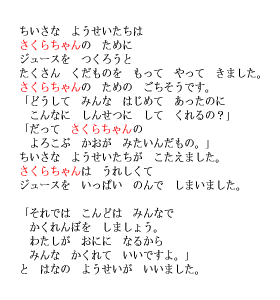 ちいさな ようせいたちは
さくらちゃんの ために
ジュースを つくろうと
たくさん くだものを もって やって きました。
さくらちゃんの ための ごちそうです。
「どうして みんな はじめて あったのに
こんなに しんせつに して くれるの？」
「だって さくらちゃんの
よろこぶ かおが みたいんだもの。」
ちいさな ようせいたちが こたえました。
さくらちゃんは うれしくて
ジュースを いっぱい のんで しまいました。

「それでは こんどは みんなで
かくれんぼを しましょう。
わたしが おにに なるから
みんな かくれて いいですよ。」
と はなの ようせいが いいました。